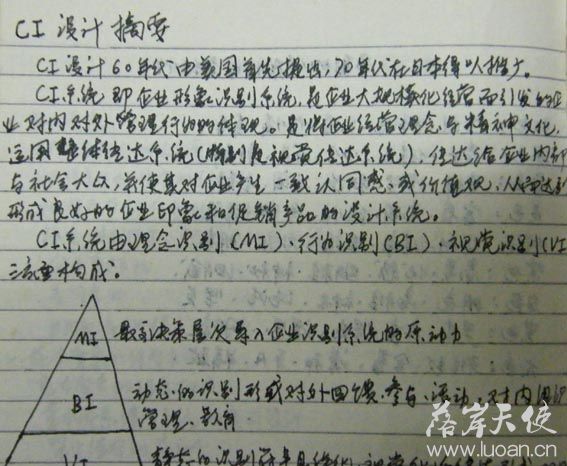 CI 设计摘要
CI 设计 60年代由美国首先提出,70年代在日本得以推广。
CI系统即企业形象识别系统,是企业大规模化经营而引发的企
业对内对外管理行为的体现。是将企业经营理念与精神文化,
运用整体传达系统(特别是视觉传达系统),传达给企业内部
与社会大众,并使其对企业产生一致认同感或价值观,从而达到
形成良好的企业印象和促销产品的设计系统。
CI系统由理念识别(MI)、行为识别(BI)、视觉识别(VI
构成。
MI 最高决策层次导入企业识别系统的原动力
BI 动态的识别形式对外回馈、参与、活动,对内组织
管理、教育
VI 静态的识别符号具体化、视觉
落岸天使
www.luoan.cn